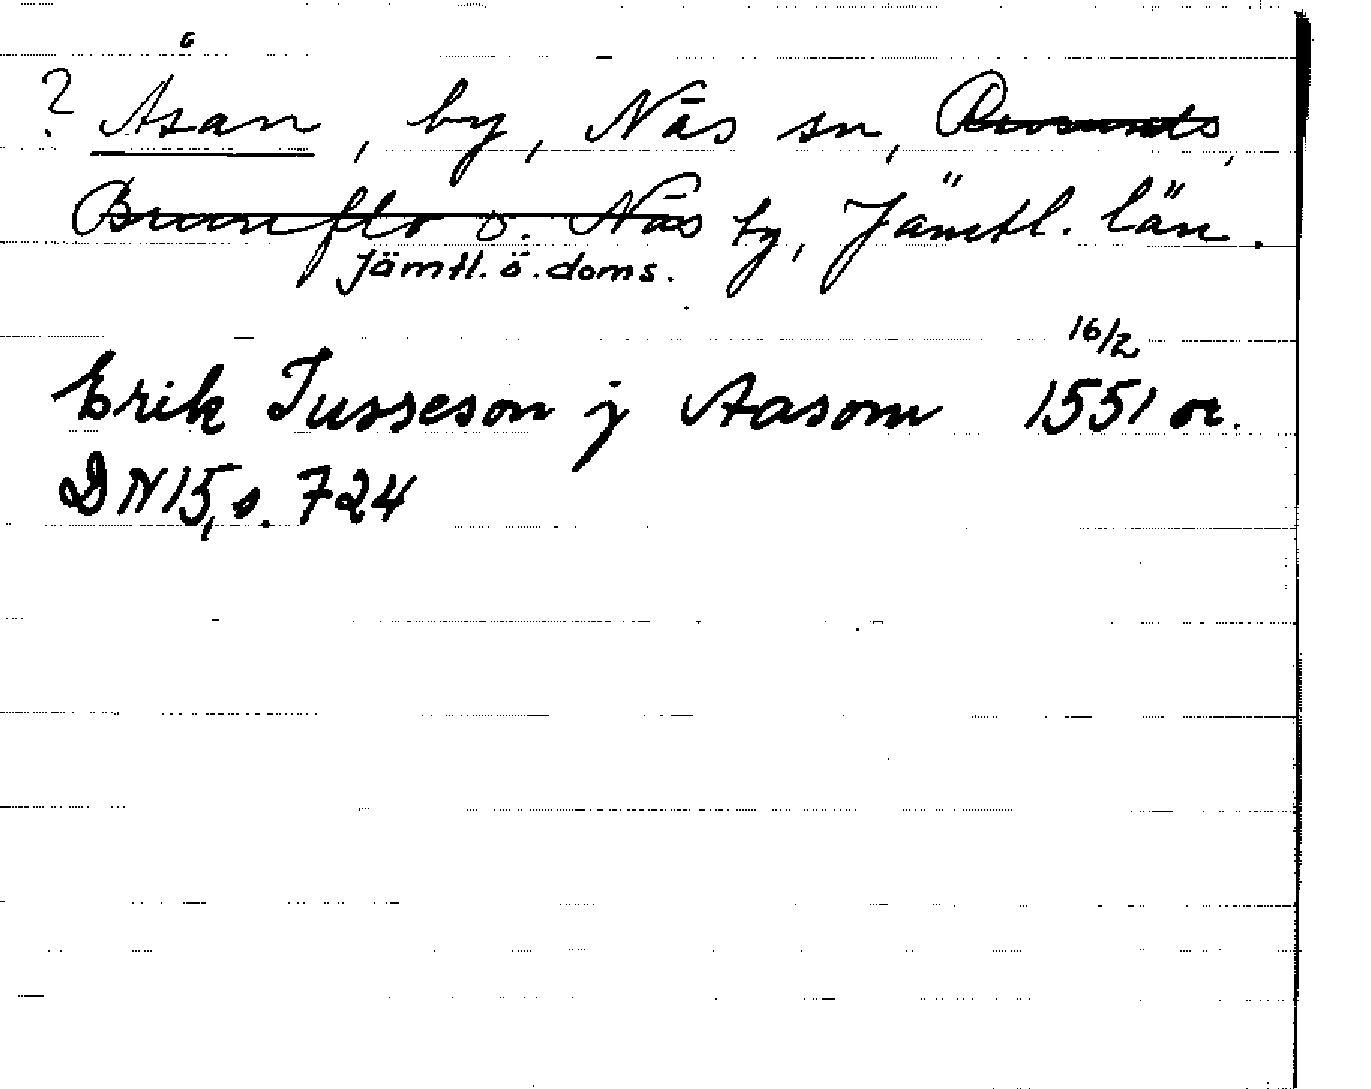 ? Åsan, by, Näs sn, Revsunds,
Brunflo o. Näs tg, Jämtl. län.
Jämtl. ö. doms.
16/2
Erik Tusseson j Aasom 1551 or.
DN 15, s. 724